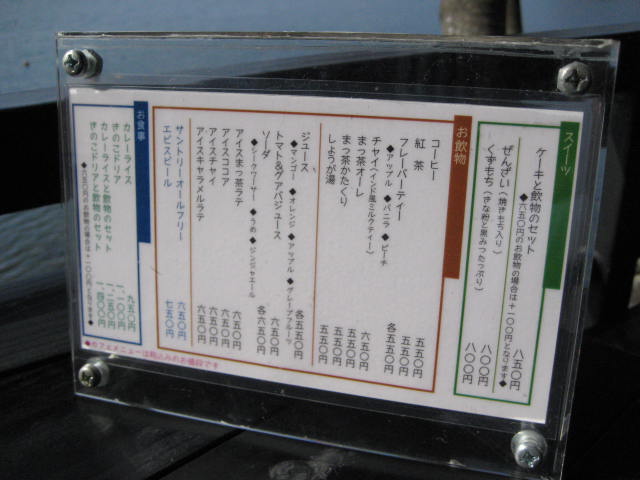 スイーツ
ケーキと飲物のセット 八五〇円
◆六五〇円のお飲物の場合は＋一〇〇円となります◆
ぜんざい（焼きもち入り） 八〇〇円
くずもち（きな粉と黒みつたっぷり） 八〇〇円
お飲物
コーヒー 五五〇円
紅茶 五五〇円
フレーバーティー 各五五〇円
◆アップル ◆バニラ ◆ピーチ
チャイ（インド風ミルクティー） 六五〇円
まっ茶オーレ 五五〇円
まっ茶かたくり 五五〇円
しょうが湯 五五〇円
ジュース 各五五〇円
◆マンゴー ◆オレンジ ◆アップル ◆グレープフルーツ
トマト&グアバジュース 六五〇円
ソーダ 各六五〇円
◆シークワーサー ◆うめ ◆ジンジャエール
アイスまっ茶ラテ 六五〇円
アイスココア 六五〇円
アイスチャイ 六五〇円
アイスキャラメルラテ 六五〇円
サントリーオールフリー 六五〇円
エビスビール 七五〇円
お食事
カレーライス 九五〇円
きのこドリア 一,一〇〇円
カレーライスと飲物のセット 一,二五〇円
きのこドリアと飲物のセット 一,四〇〇円
◆六五〇円のお飲物の場合は＋一〇〇円となります◆
◆カフェメニューは税込みのお値段です